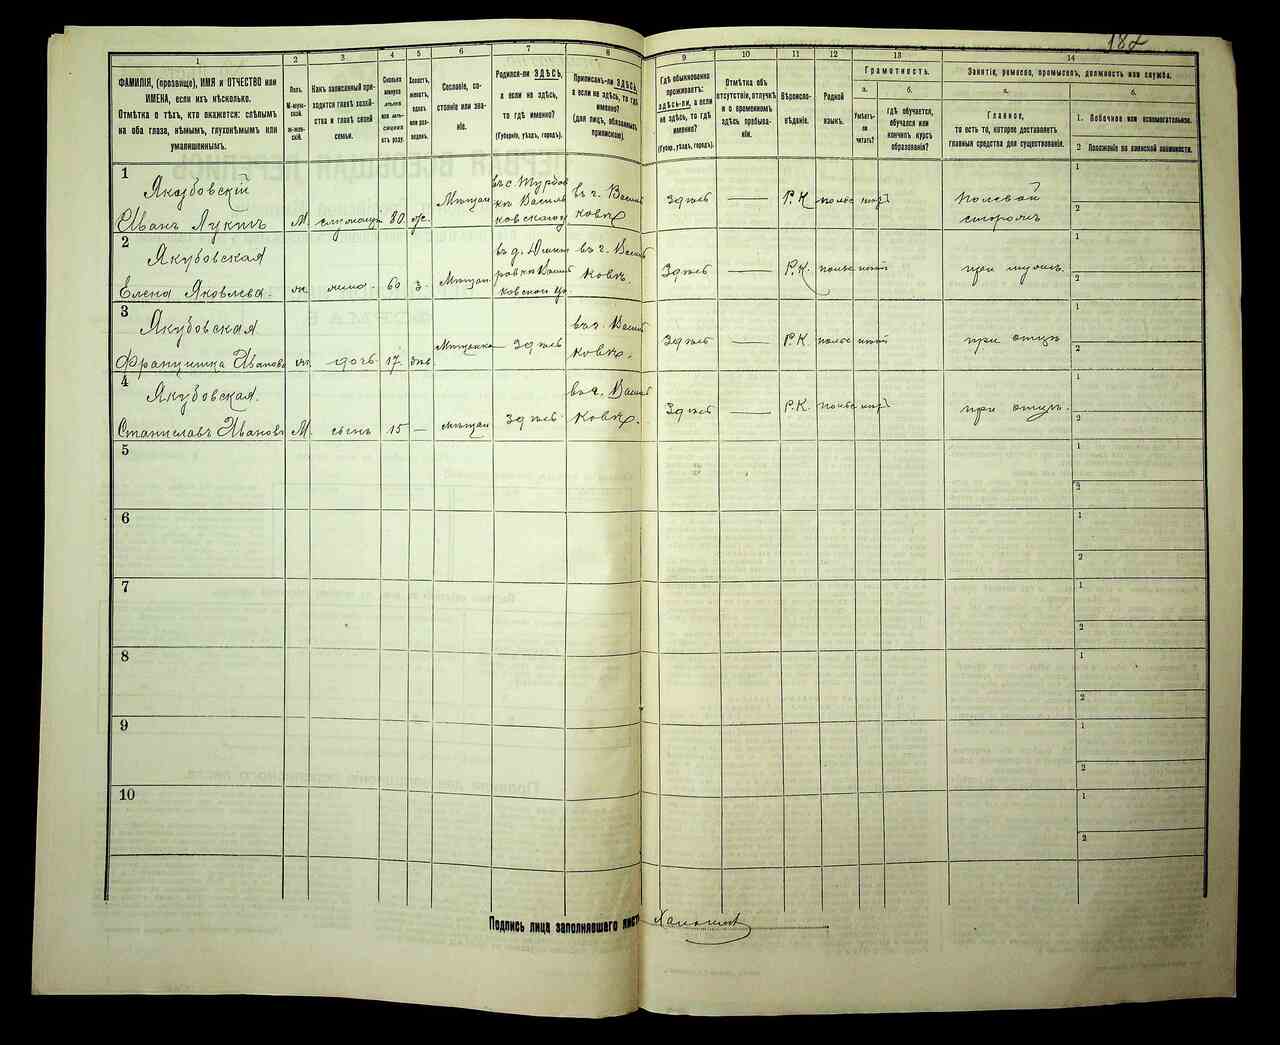 182
1
2
3
4
5
6
7
8
9
10
11
12
13
14
ФАМИЛІЯ, (прозвище), ИМЯ и ОТЧЕСТВО или
ИМЕНА, если ихъ нѣсколько.
Отмѣтка о тѣхъ, кто окажется: слѣпымъ
на оба глаза, нѣмымъ, глухонѣмымъ или
умалишеннымъ.
Полъ.
М-муж-
ской.
ж-жен-
скій.
Какъ записанный при-
ходится главѣ хозяй-
ства и главѣ своей
семьи.
Сколько
минуло
лѣтъ
или мѣ-
сяцевъ
отъ роду.
Холостъ,
женатъ,
вдовъ
или раз-
веденъ.
Сословіе, со-
стояніе или зва-
ніе.
Родился-ли ЗДѢСЬ,
а если не здѣсь,
то гдѣ именно?
(Губернія, уѣздъ, городъ).
Приписанъ-ли ЗДѢСЬ,
а если не здѣсь, то гдѣ
именно?
(для лицъ, обязанныхъ
припискою).
Гдѣ обыкновенно
проживаетъ:
здѣсь-ли, а если
не здѣсь, то гдѣ
именно?
(Губер., уѣздъ, городъ).
Отмѣтка объ
отсутствіи, отлучкѣ
и о временномъ
здѣсь пребыва-
ніи.
Вѣроиспо-
вѣданіе.
Родной
языкъ.
Грамотность.
а.
б.
Умѣетъ-
ли
читать?
гдѣ обучается,
обучался или
кончилъ курсъ
образованія?
Занятіе, ремесло, промыселъ, должность или служба.
а.
б.
Главное,
то есть то, которое доставляетъ
главныя средства для существованія.
1. Побочное или вспомогательное.
2 Положеніе по воинской повинности.
1
Якубовскій
Иванъ Лукинъ
М
80
Мѣщан
въ с. Турбов
въ г. Васил
ковѣ
Здѣсь
—
Р.К
польс
Полевой
сторожъ
1
2
2
Якубовская
Елена Яковлева.
ж.
жена.
60
З.
Мѣщан
въ г. Васил
ковѣ.
Здѣсь
—
Р.К.
польс
при мужѣ.
1
2
3
Якубовская
Францишка Иванова
ж.
дочь
17.
Мѣщанка
Здѣсь
въ г. Васил
ковѣ.
Здѣсь
—
Р.К.
польс
при отцѣ
1
2
4
Якубовская.
Станиславъ Ивановъ
М.
сынъ
15
—
мѣщан
Здѣсь
въ г. Васил
ковѣ.
Здѣсь
—
Р.К.
польс
при отцѣ.
1
2
5
1
2
6
1
2
7
1
2
8
1
2
9
1
2
10
1
2
Подпись лица заполнявшего листъ